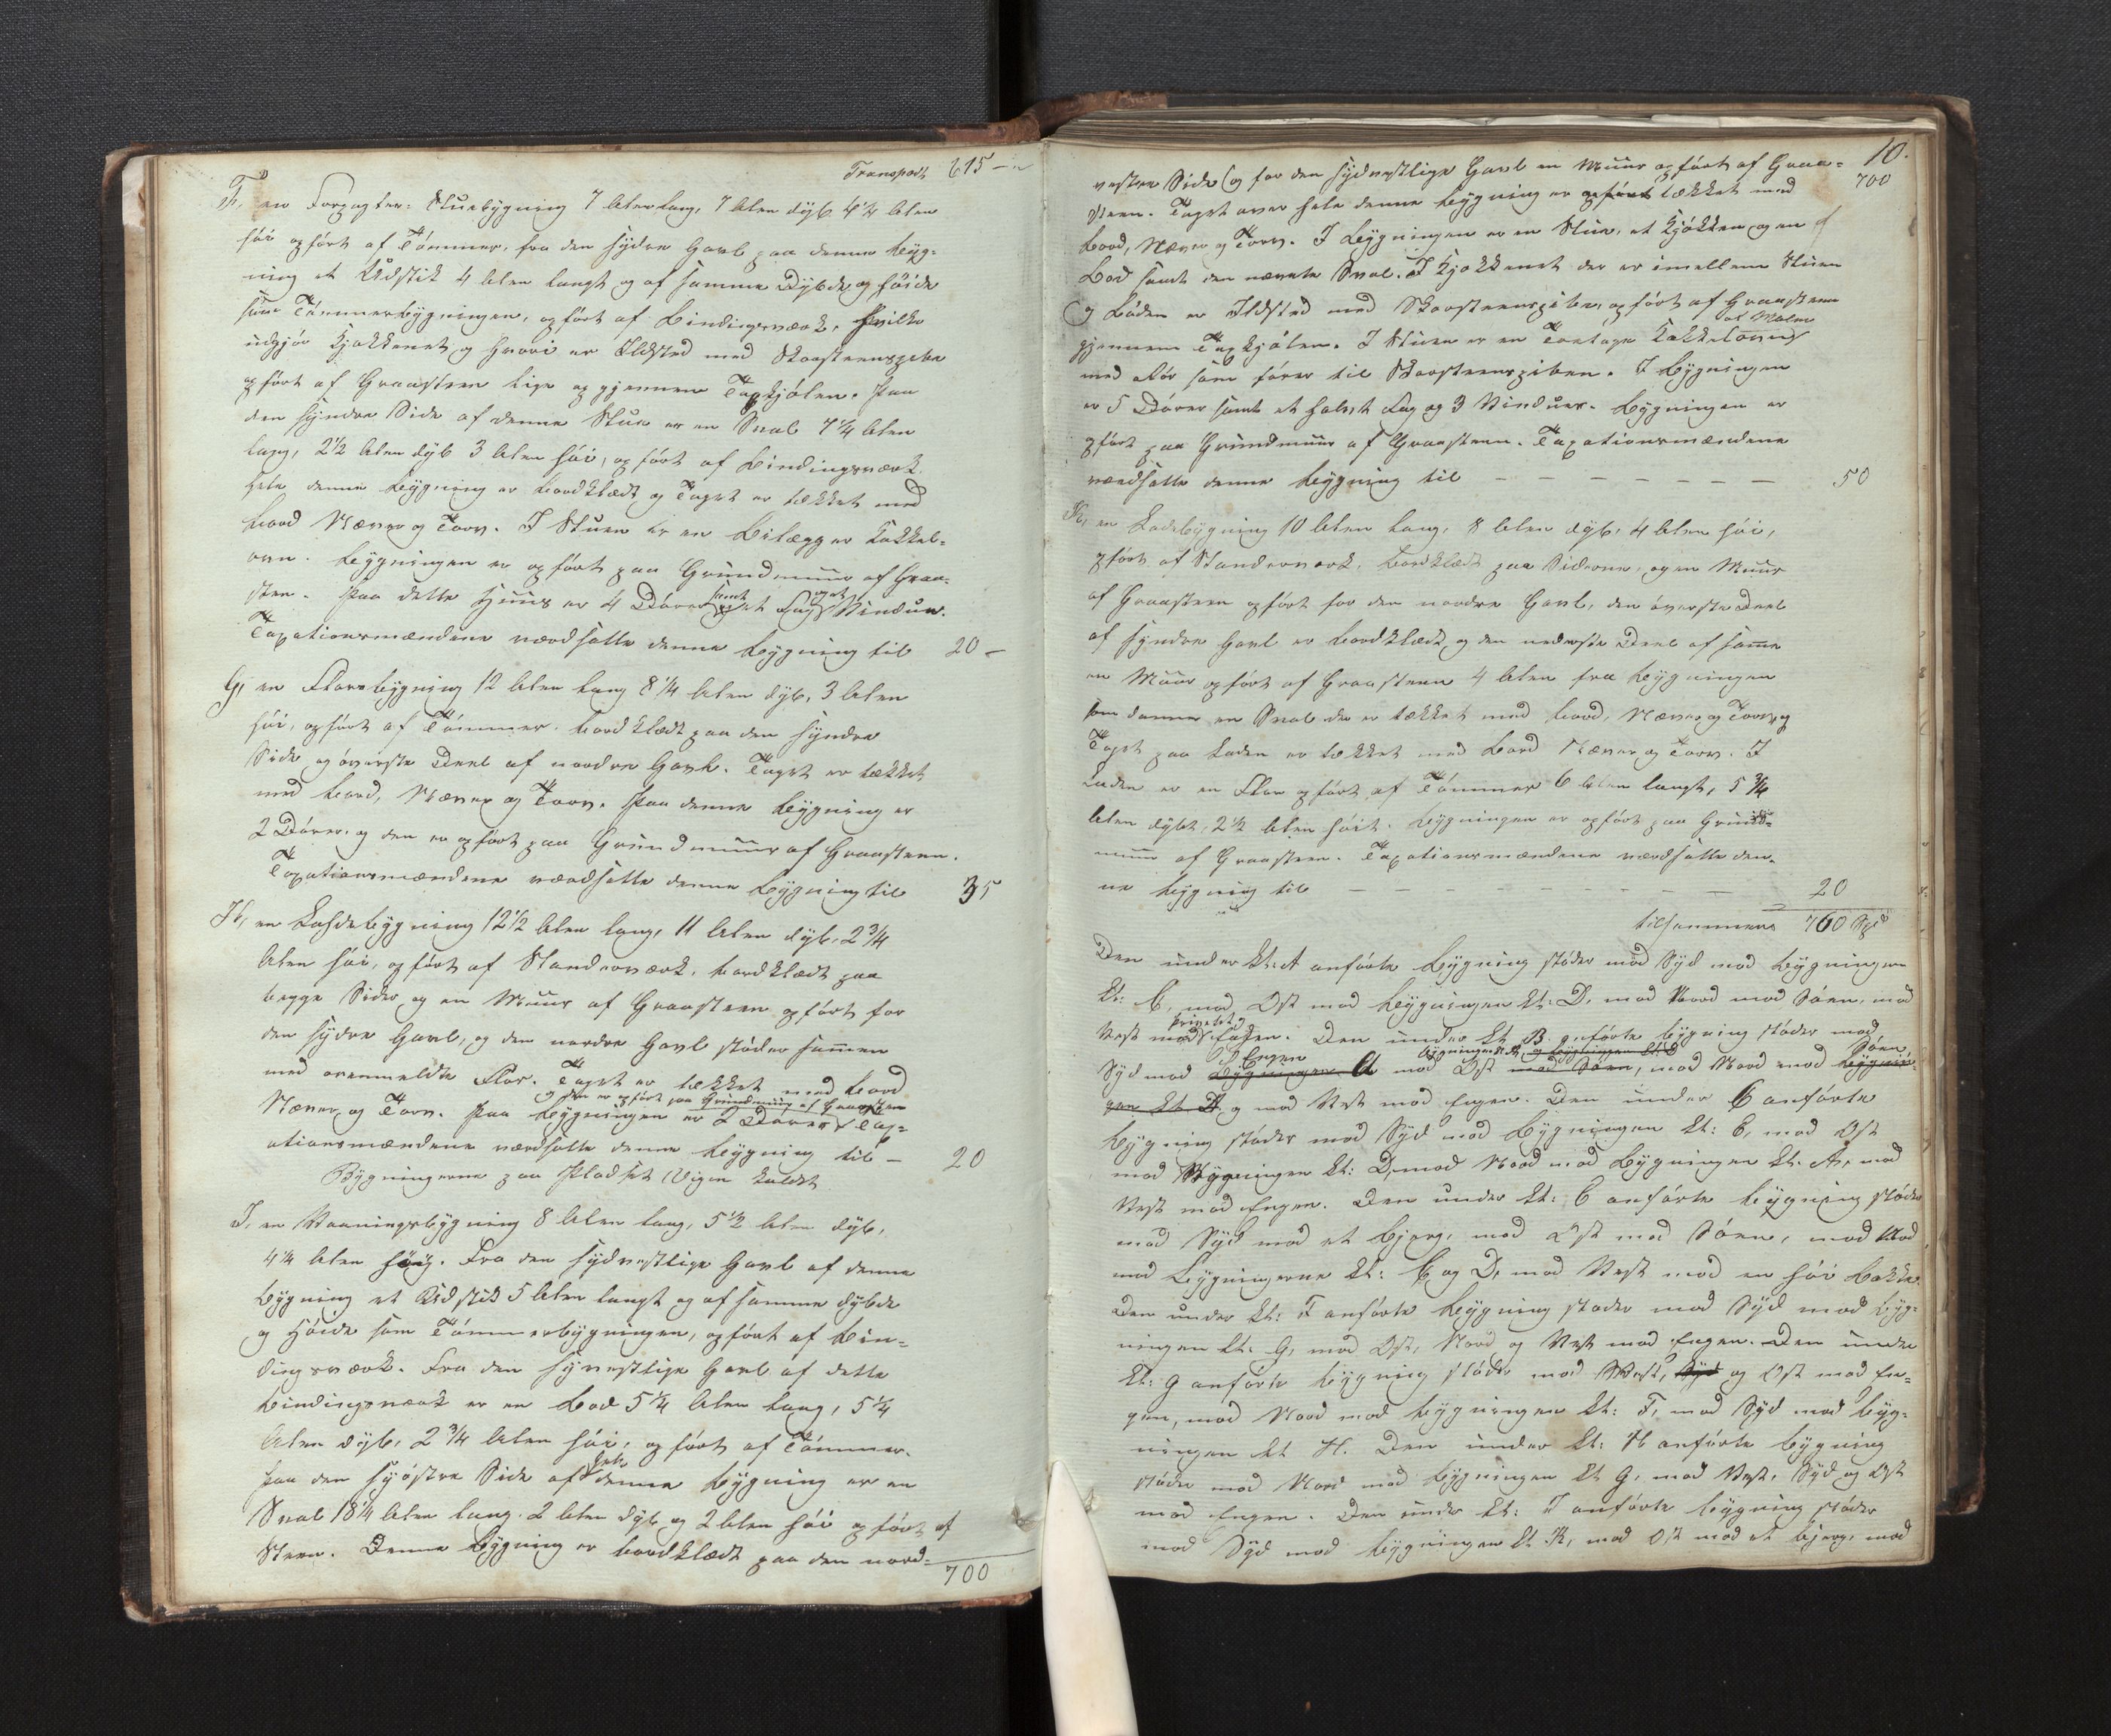 Transport 615 –
F, en Forpagter-Stuebygning 7 Alen lang, 7 Alen dyb 4¼ Alen
høi opført af Tømmer, fra den sydre Gavl paa denne Byg-
ning et Udstik 4 Alen langt og af samme Dybde og Høide
som Tømmerbygningen, opført af Bindingsværk, hvilke
udgjør Kjøkkenet og hvori er Ildsted med Skorsteenspibe
opført af Graasteen lige op gjennem Tagkjølen. Paa
den syndre Side af denne Stue er en Sval 7¼ Alen
lang, 2½ Alen dyb 3 Alen høi, opført af Bindingsværk.
Hele denne Bygning er bordklædt og Taget er tækket med
Bord Næver og Torv. I Stuen er en Bilægger Kakkel-
ovn. Bygningen er opført paa Grundmuur af Graa-
steen. Paa dette Huus er 4 Dører samt et Fag Vinduer.
Taxationsmændene værdsatte denne Bygning til 20 –
G, en Florbygning 12 Alen lang 8¼ Alen dyb, 3 Alen
høi, opført af Tømmer. bordklædt paa den syndre
Side og øverste Deel af nordre Gavl. Taget er tækket
med Bord, Næver og Torv. Paa denne Bygning er
2 Dører, og den er opført paa Grundmuur af Graasteen.
Taxationsmændene værdsatte denne Bygning til 35
H, en Ladebygning 12½ Alen lang, 11 Alen dyb, 2¾
Alen høi, opført af Standerværk, bordklædt paa
begge Sider og en Muur af Graasteen opført for
den sydre Gavl, og den nordre Gavl støder sammen
med ovenmeldte Flor. Taget er tækket med Bord
og den er opført paa Grundmuur af Graasteen
Næver og Torv. Paa Bygningen er 2 Dører Tax-
ationsmændene værdsatte denne Bygning til – 20
Bygningerne paa Pladset Vigen kaldet
I, en Vaaningsbygning 8 Alen lang, 5½ Alen dyb,
4¼ Alen høig. Fra den sydvestlige Gavl af denne
Bygning et Udstik 5 Alen langt og af samme Dybde
og Høide som Tømmerbygningen, opført af Bin-
dingsværk. Fra den sydvestlige Gavl af dette
Bindingsværk er en Bod 5¼ Alen lang, 5¼
Alen dyb, 2¾ Alen høi, opført af Tømmer.
Paa den syøstre Side af hele denne Bygning er en
Sval 18¼ Alen lang. 2 Alen dyb og 2 Alen høi opført af
Steen. Denne Bygning er bordklædt paa den nord-
700
10.
vestre Side og for den sydvestlige Gavl en Muur opført af Graa- 700
steen. Taget over hele denne Bygning er opført tækket med
Bord, Næver og Torv. I Bygningen er en Stue, et Kjøkken og en
Bod samt den nævnte Sval. I Kjøkkenet der er imellem Stuen
og Boden er Ildsted med Skorsteenspibe, opført af Graasteen
gjennem Tagkjølen. I Stuen er en Toetages Kakkelovn af Malm
med Rør som fører til Skorsteenspiben. I Bygningen
er 5 Dører samt et halvt Fag og 3 Vinduer. Bygningen er
opført paa Grundmuur af Graasteen. Taxationsmændene
værdsatte denne Bygning til – – – – – – – 50
K, en Ladebygning 10 Alen lang, 8 Alen dyb, 4 Alen høi,
opført af Standerværk, bordklædt paa Siderne, og en Muur
af Graasteen opført for den nordre Gavl, den øverste Deel
af syndre Gavl er bordklædt og den nederste Deel af samme
en Muur opført af Graasteen 4 Alen fra Bygningen
som danner en Sval der er tækket med Bord, Næver og Torv, og
Taget paa Laden er tækket med Bord Næver og Torv. I
Laden er en Flor opført af Tømmer 6 Alen langt, 5¾
Alen dybt, 2½ Alen høit. Bygningen er opført paa Grund-
muur af Graasteen. Taxationsmændene værdsatte den-
ne Bygning til – – – – – – – 20
tilsammen 760 Spd
Den under Lt: A anførte Bygning støder mod Syd mod Bygningen
Lt: C, mod Øst mod Bygningen Lt: D, mod Nord mod Søen, mod
Vest mod Privetet. Den under Lt B anførte Bygning støder mod
Syd mod Bygningen A Engen mod Øst mod Søen, mod Nord mod Bygnin- Søen
gen Lt D og mod Vest mod Engen. Den under C anførte
Bygning støder mod Syd mod Bygningen Lt: C, mod Øst
mod Bygningen Lt: D, mod Nord mod Bygningen Lt. A, mod
Vest mod Engen. Den under Lt: C anførte Bygning støder
mod Syd mod et Bjerg, mod Øst mod Søen, mod Nord
mod Bygningerne Lt: C og D, mod Vest mod en høi Bakke.
Den under Lt: F anførte Bygning støder mod Syd mod Byg-
ningen Lt. G, mod Øst, Nord og Vest mod Engen. Den under
Lt: G anførte Bygning støder mod Vest, Syd og Øst mod En-
gen, mod Nord mod Bygningen Lt: F, mod Syd mod Byg-
ningen Lt H. Den under Lt: H anførte Bygning
støder mod Nord mod Bygningen Lt G, mod Vest, Syd og Øst
mod Engen. Den under Lt: I anførte Bygning støder
mod Syd mod Bygningen Lt K, mod Øst mod et Bjerg, mod